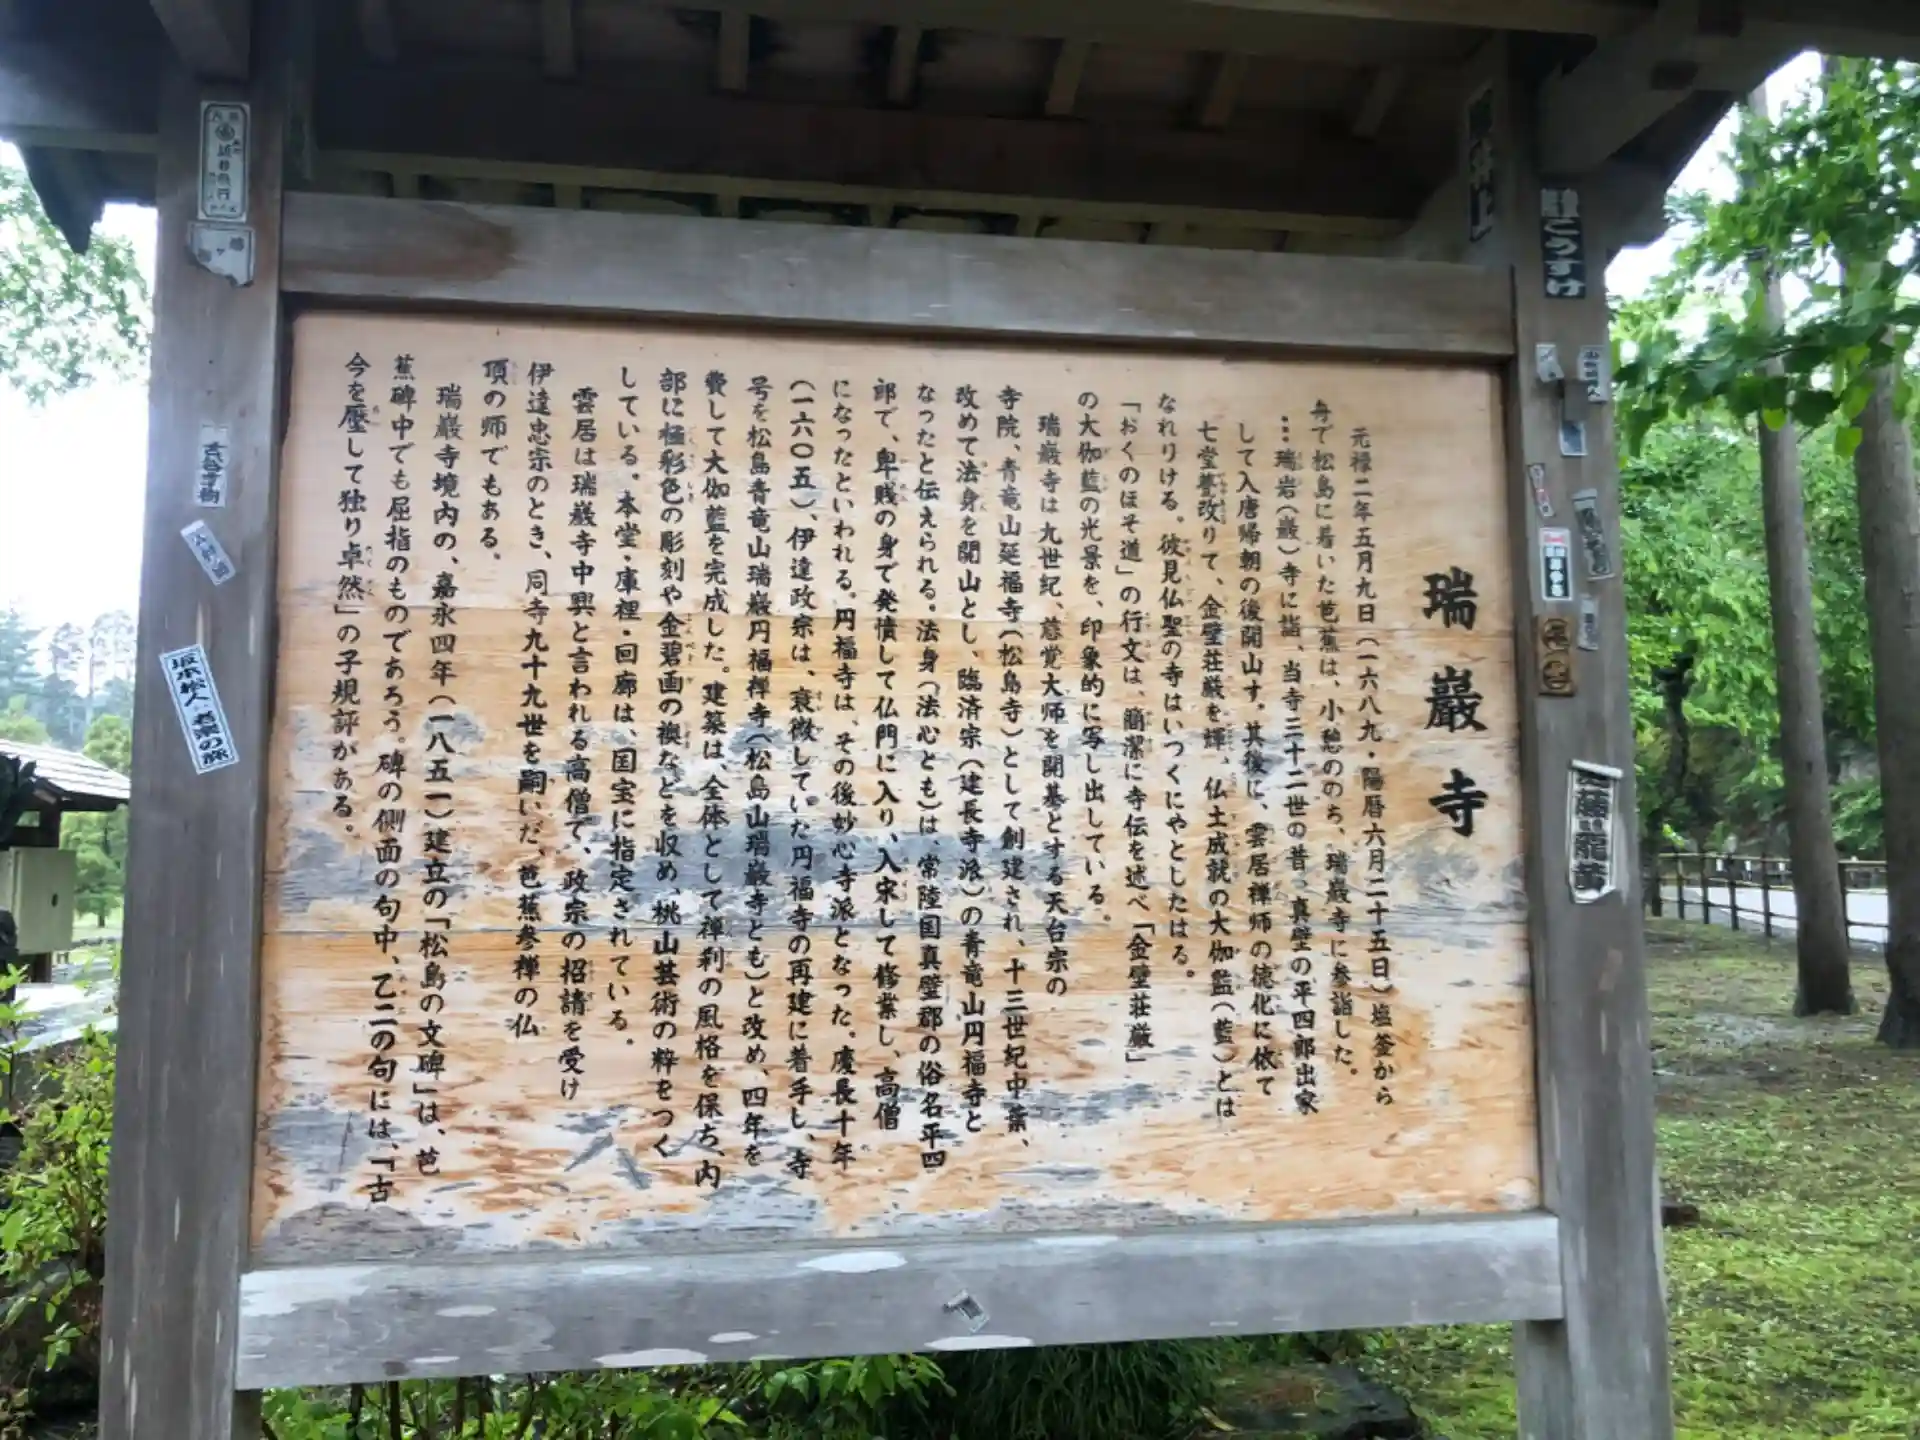 瑞巖寺
元禄二年五月九日（一六八九・陽暦六月二十五日）塩釜から
舟で松島に着いた芭蕉は、小憩ののち、瑞巖寺に参詣した。
…瑞岩（巌）寺に詣、当寺三十二世の昔、真壁の平四郎出家
して入唐帰朝の後開山す。其後に、雲居禅師の徳化に依て
七堂甍改りて、金壁荘厳を輝、仏土成就の大伽藍（藍）とは
なれりける。彼見仏聖の寺はいつくにやとしたはる。
「おくのほそ道」の行文は、簡潔に寺伝を述べ「金壁荘厳」
の大伽藍の光景を、印象的に写し出している。
瑞巖寺は九世紀、慈覚大師を開基とする天台宗の
寺院、青竜山延福寺（松島寺）として創建され、十三世紀中葉、
改めて法身を開山とし、臨済宗（建長寺派）の青竜山円福寺と
なったと伝えられる。法身（法心とも）は、常陸国真壁郡の俗名平四
郎で、卑賎の身で発憤して仏門に入り、入宋して修業し、高僧
になったといわれる。円福寺は、その後妙心寺派となった。慶長十年
（一六〇五）、伊達政宗は、衰微していた円福寺の再建に着手し、寺
号を松島青竜山瑞巌円福禅寺（松島山瑞巌寺とも）と改め、四年を
費して大伽藍を完成した。建築は、全体として禅刹の風格を保ち、内
部に極彩色の彫刻や金碧画の襖などを収め、桃山芸術の粋をつく
している。本堂・庫裡・回廊は、国宝に指定されている。
雲居は瑞巌寺中興と言われる高僧で、政宗の招請を受け
伊達忠宗のとき、同寺九十九世を嗣いだ、芭蕉参禅の仏
頂の師でもある。
瑞巖寺境内の、嘉永四年（一八五一）建立の「松島の文碑」は、芭
蕉碑中でも屈指のものであろう。碑の側面の句中、乙二の句には、「古
今を壓して独り卓然」の子規評がある。
坂本松人 老楽の旅
こうすけ
井上